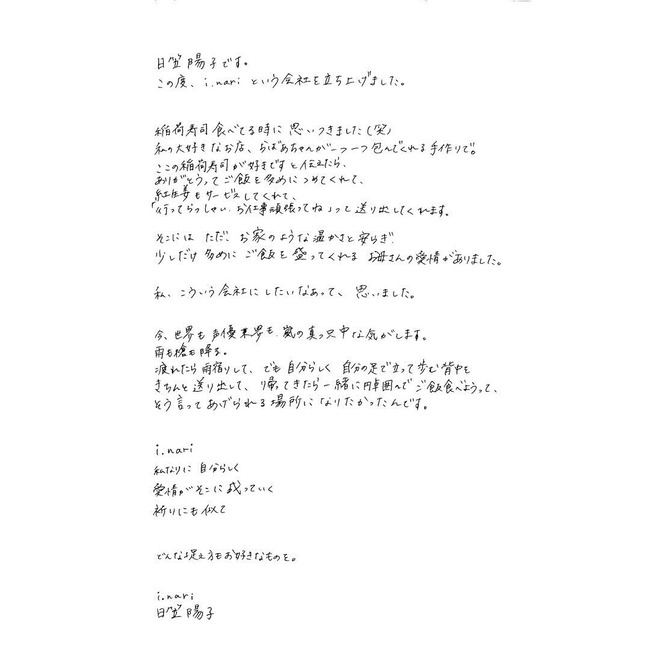 日笠陽子です。
この度、i.nari という会社を立ち上げました。
稲荷寿司食べてる時に思いつきました(笑)
私の大好きなお店、おばあちゃんが一つ一つ包んでくれる手作りで。
ここの稲荷寿司が好きですと伝えたら、
ありがとうってご飯を多めにつめてくれて、
紅生姜もサービスしてくれて、
「行ってらっしゃい、お仕事頑張ってね」って送り出してくれます。
そこには ただ、お家のような温かさと安らぎ
少しだけ多めに ご飯を盛ってくれる お母さんの愛情がありました。
私、こういう会社にしたいなあって、思いました。
今、世界も声優業界も、嵐の真っ只中な気がします。
雨も槍も降る。
疲れたら雨宿りして、でも自分らしく 自分の足で立って歩む背中を
きちんと送り出して、帰ってきたら一緒に円卓囲んでご飯食べようって、
そう言ってあげられる場所になりたかったんです。
i.nari
私なりに 自分らしく
愛情がそこに残っていく
祈りにも似て
どんな捉え方もお好きなものを。
i.nari
日笠陽子